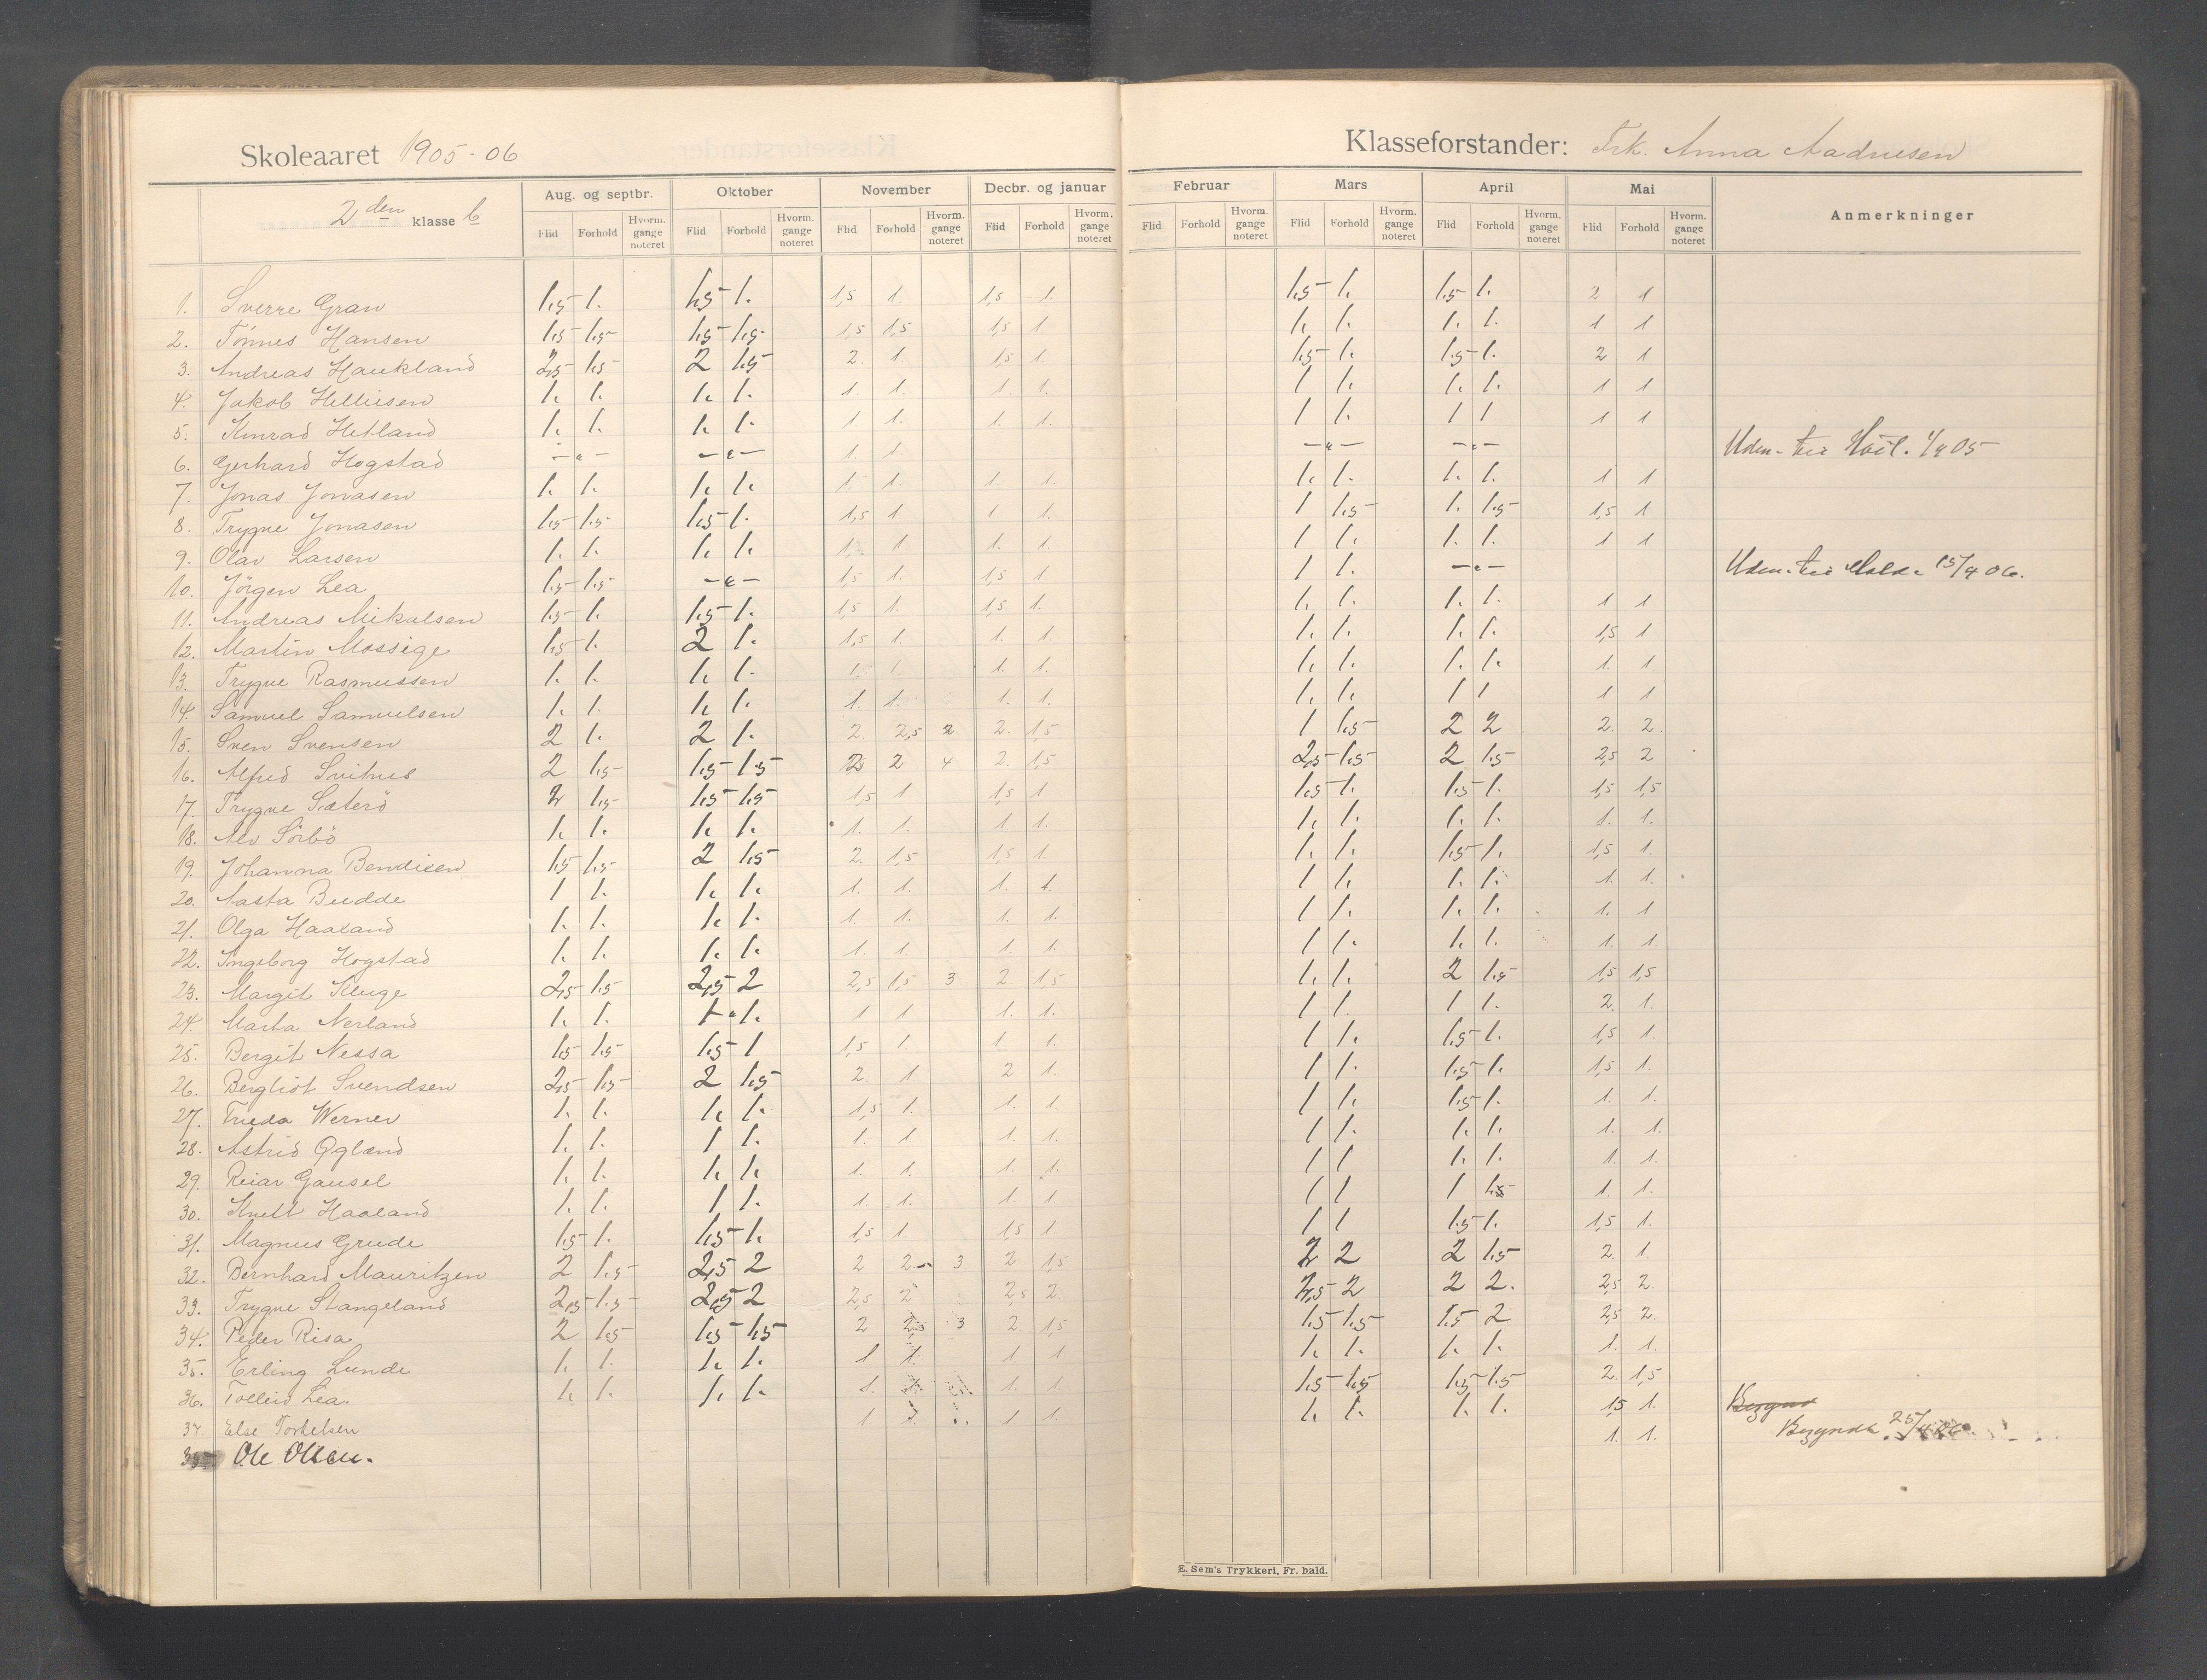 Skoleaaret 1905-06
Klasseforstander: Frk. Anna Aadnesen
2den klasse b
Aug. og septbr. Oktober November Decbr. og januar Februar Mars April Mai Anmerkninger
Flid Forhold Hvorm. gange noteret Flid Forhold Hvorm. gange noteret Flid Forhold Hvorm. gange noteret Flid Forhold Hvorm. gange noteret Flid Forhold Hvorm. gange noteret Flid Forhold Hvorm. gange noteret Flid Forhold Hvorm. gange noteret Flid Forhold Hvorm. gange noteret
1. Sverre Gran 1,5 1. 1,5 1. 1,5 1. 1,5 1. 1,5 1. 1,5 1. 2 1
2. Tönnes Hansen 1,5 1,5 1,5 1,5 1,5 1,5 1,5 1 1. 1. 1. 1. 1 1
3. Andreas Haukland 2,5 1,5 2 1,5 2. 1. 1,5 1 1,5 1. 1,5 1. 2 1
4. Jakob Helliesen 1. 1. 1. 1. 1. 1. 1. 1. 1 1. 1. 1. 1 1
5. Konrad Hetland 1. 1. 1. 1. 1 1. 1. 1. 1 1. 1 1 1 1
6. Gerhard Hogstad — " — — " — 1. 1. — " — — " — 1/4 05
7. Jonas Jonasen 1. 1. 1. 1. 1. 1. 1. 1. 1. 1. 1. 1. 1 1
8. Trygve Jonasen 1,5 1,5 1,5 1. 1,5 1 1. 1. 1 1,5 1. 1,5 1,5 1
9. Olav Larsen 1. 1. 1. 1. 1. 1 1. 1. 1 1. 1. 1. 1 1
10. Jörgen Lea 1,5 1,5 — " — 1,5 1. 1,5 1. 1 1. — " — 15/4 06.
11. Andreas Mikalsen 1,5 1. 1,5 1. 1,5 1. 1,5 1. 1. 1. 1. 1. 1 1
12. Martin Mossige 1,5 1. 2 1. 1,5 1 1. 1. 1. 1. 1. 1. 1,5 1
13. Trygve Rasmussen 1. 1. 1. 1. 1. 1. 1. 1. 1. 1. 1. 1. 1. 1
14. Samuel Samuelsen 1. 1. 1. 1. 1. 1. 1. 1. 1. 1. 1 1 1 1
15. Sven Svensen 2 1. 2 1. 2. 2,5 2 2. 1,5 1 1,5 2 2 2. 2.
16. Alfred 2 1,5 1,5 1,5 2 4 2. 1,5 2,5 1,5 2 1,5 2,5 2
17. Trygve Sæterö 2 1,5 1,5 1,5 1,5 1 1,5 1 1,5 1. 1,5 1. 1,5 1,5
18. Alv Sörbö 1. 1. 1. 1. 1. 1. 1 1. 1. 1. 1. 1. 1. 1.
19. Johanna Bendixen 1,5 1,5 2 1,5 2. 1,5 1,5 1. 1. 1. 1,5 1. 1,5 1.
20. Aasta Budde 1 1. 1. 1. 1. 1. 1. 1. 1 1. 1. 1. 1. 1.
21. Olga Haaland 1. 1. 1. 1. 1 1. 1. 1. 1 1. 1. 1. 1. 1
22. Ingeborg Hogstad 1. 1. 1. 1. 1. 1. 1. 1. 1 1. 1. 1. 1. 1.
23. Margit Kluge 2,5 1,5 2,5 2 2,5 1,5 3 2. 1,5 1. 1. 2 1,5 1,5 1,5
24. Marta Nerland 1. 1. 1. 1 1 1. 1. 1 1. 1 1. 2. 1.
25. Bergit Nessa 1,5 1,5 1,5 1 1,5 1. 1. 1. 1 1. 1,5 1. 1,5 1.
26. Bergliot Svendsen 2,5 1,5 2 1,5 2. 1 2 1. 1 1. 1,5 1. 1,5 1.
27. Frieda Werner 1. 1. 1. 1. 1,5 1. 1. 1. 1 1. 1,5 1. 1. 1.
28. Astrid Ogland 1. 1. 1 1. 1. 1. 1. 1. 1 1. 1. 1. 1. 1.
29. Reiar Gausel 1. 1. 1. 1. 1. 1. 1. 1. 1 1 1. 1. 1. 1.
30. Knut Haaland 1. 1. 1 1. 1. 1. 1. 1 1 1 1 1. 1.
31. Magnus Grude 1,5 1. 1,5 1. 1,5 1. 1,5 1. 1 1 1,5 1. 1,5 1.
32. Bernhard Mauritzen 2 1,5 2,5 2 2 2. 3 2 1,5 2 2 2 1,5 2. 1
33. Trygve Stangeland 2,5 1,5 2,5 2 2,5 2 2,5 2. 2 2 2. 2,5 2
34. Peder Risa 2 1,5 1,5 1,5 2 3 2 1,5 1,5 1,5 1,5 2 2,5 2
35. Erling Lunde 1. 1. 1. 1. 1 1. 1 1 1. 1. 1. 1. 1. 1.
36. Tolleiv Lea. 1. 1. 1. 1. 1. 1. 1. 1,5 1,5 1,5 1,5 2. 1,5
37. Else Torkelsen 1 1 1 1. 1. 1. 1. 1,5 1.
Ole Olsen. 1. 1. Begyndte 25/4 06.
E. Sem's Trykkeri, Fr. hald.